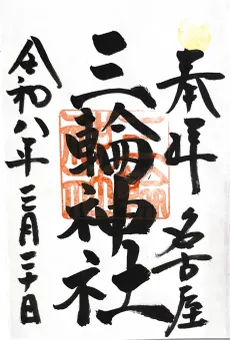 奉拝
名古屋
三輪神社
令和八年三月二十日